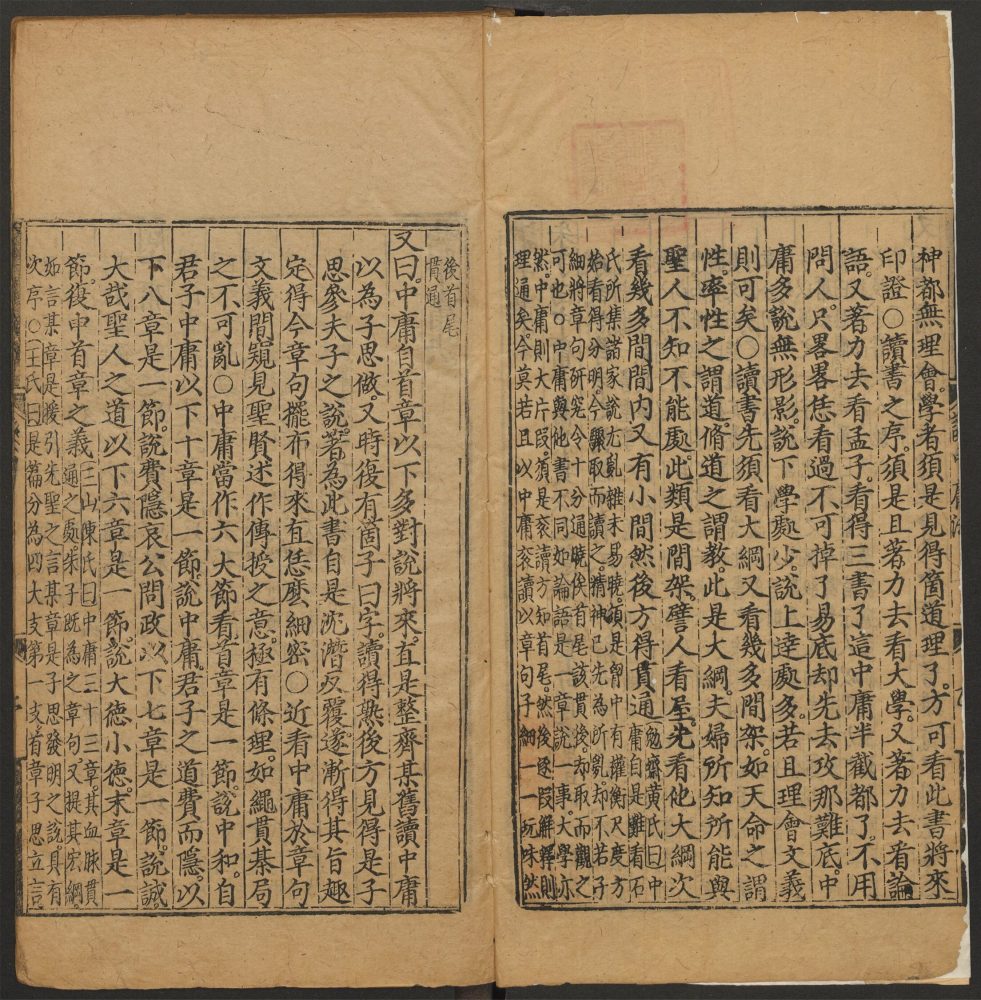 神都無理會學者須是見得箇道理了方可看此書將來
印證○讀書之序須是且著力去看大學又著力去看論
語又著力去看孟子看得三書了這中庸半截都了不用
問人只畧畧恁看過不可掉了易底却先去攻那難底中
庸多說無形影說下學處少說上達處多若且理會文義
則可矣○讀書先須看大綱又看幾多間架如天命之謂
性率性之謂道脩道之謂教此是大綱夫婦所知所能與
聖人不知不能處此類是間架譬人看屋先看他大綱次
看幾多間間內又有小間然後方得貫通
勉齋黃氏曰中
庸自是難看石
氏所集諸家說尤亂雜未易曉須是胷中有權衡尺度方
始看得分明今驟取而讀之精神已先為所亂却不若子
細將章句研究令十分通曉俟首尾該貫後却取而觀之
可也○中庸與他書不同如論語是一章說一事大學亦
然中庸則大片段須是衮讀方知首尾然後逐段解釋則
理通矣今莫若且以中庸衮讀以章句子細一一玩味然
後首尾
貫通
又曰中庸自首章以下多對說將來直是整齊某舊讀中庸
以為子思做又時復有箇子曰字讀得熟後方見得是子
思參夫子之說著為此書自是沈潛反覆遂漸得其旨趣
定得今章句擺布得來直恁麽細密○近看中庸於章句
文義間窺見聖賢述作傳授之意極有條理如繩貫棊局
之不可亂○中庸當作六大節看首章是一節說中和自
君子中庸以下十章是一節說中庸君子之道費而隱以
下八章是一節說費隱哀公問政以下七章是一節說誠
大哉聖人之道以下六章是一節說大德小德末章是一
節復申首章之義
三山陳氏曰中庸三十三章其血脉貫
通之處朱子既為之章句又提其宏綱
如言某章是援引先聖之言某章是子思發明之說具有
次序○王氏曰是篇分為四大支第一支首章子思立言